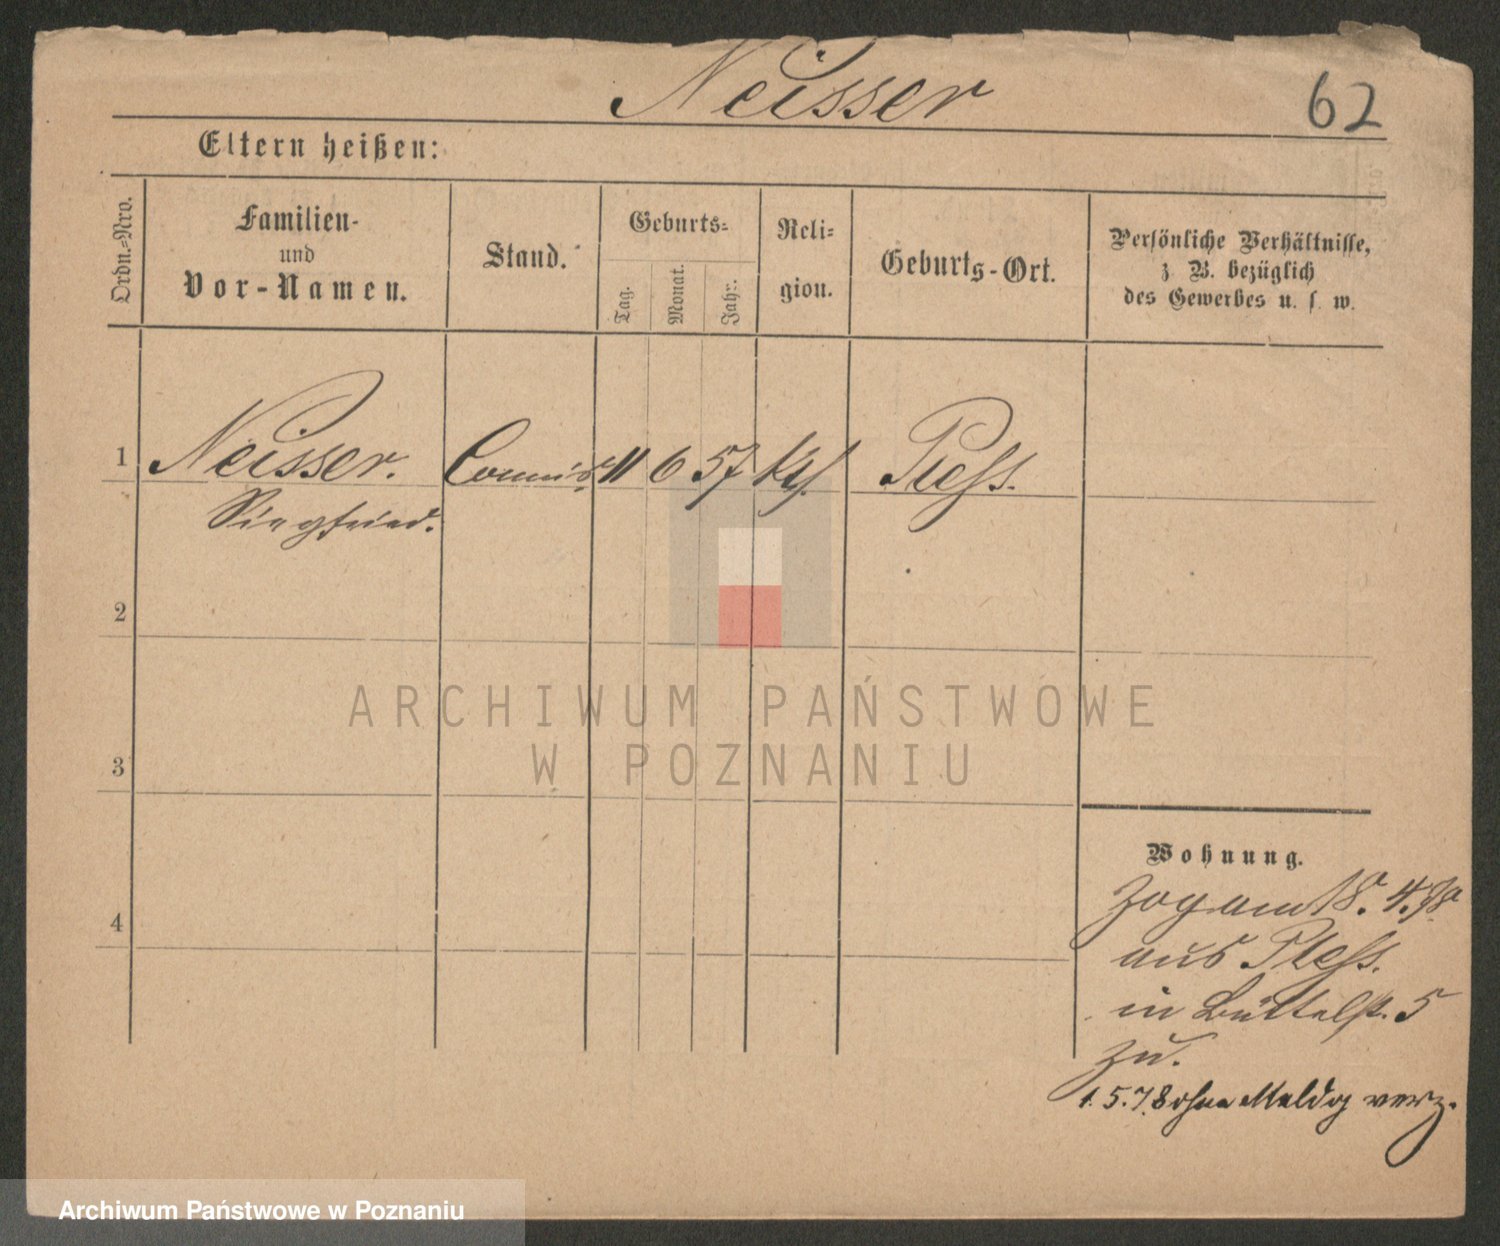 Neisser
62
Eltern heißen:
Ordn.-Nro.
Familien-
und
Vor-Namen.
Stand.
Geburts-
Tag.
Monat.
Jahr.
Reli-
gion.
Geburts-Ort.
Persönliche Verhältnisse,
z. B. bezüglich
des Gewerbes u. s. w.
1 Neisser. Commis 11 6 57 Pless.
Siegfried.
2
3
4
ARCHIWUM PAŃSTWOWE
W POZNANIU
Wohnung.
Zog am 18. 4. 78
aus Pless.
in Büttelst. 5
zu.
1. 5. 78 ohne Meldg verz.
Archiwum Państwowe w Poznaniu